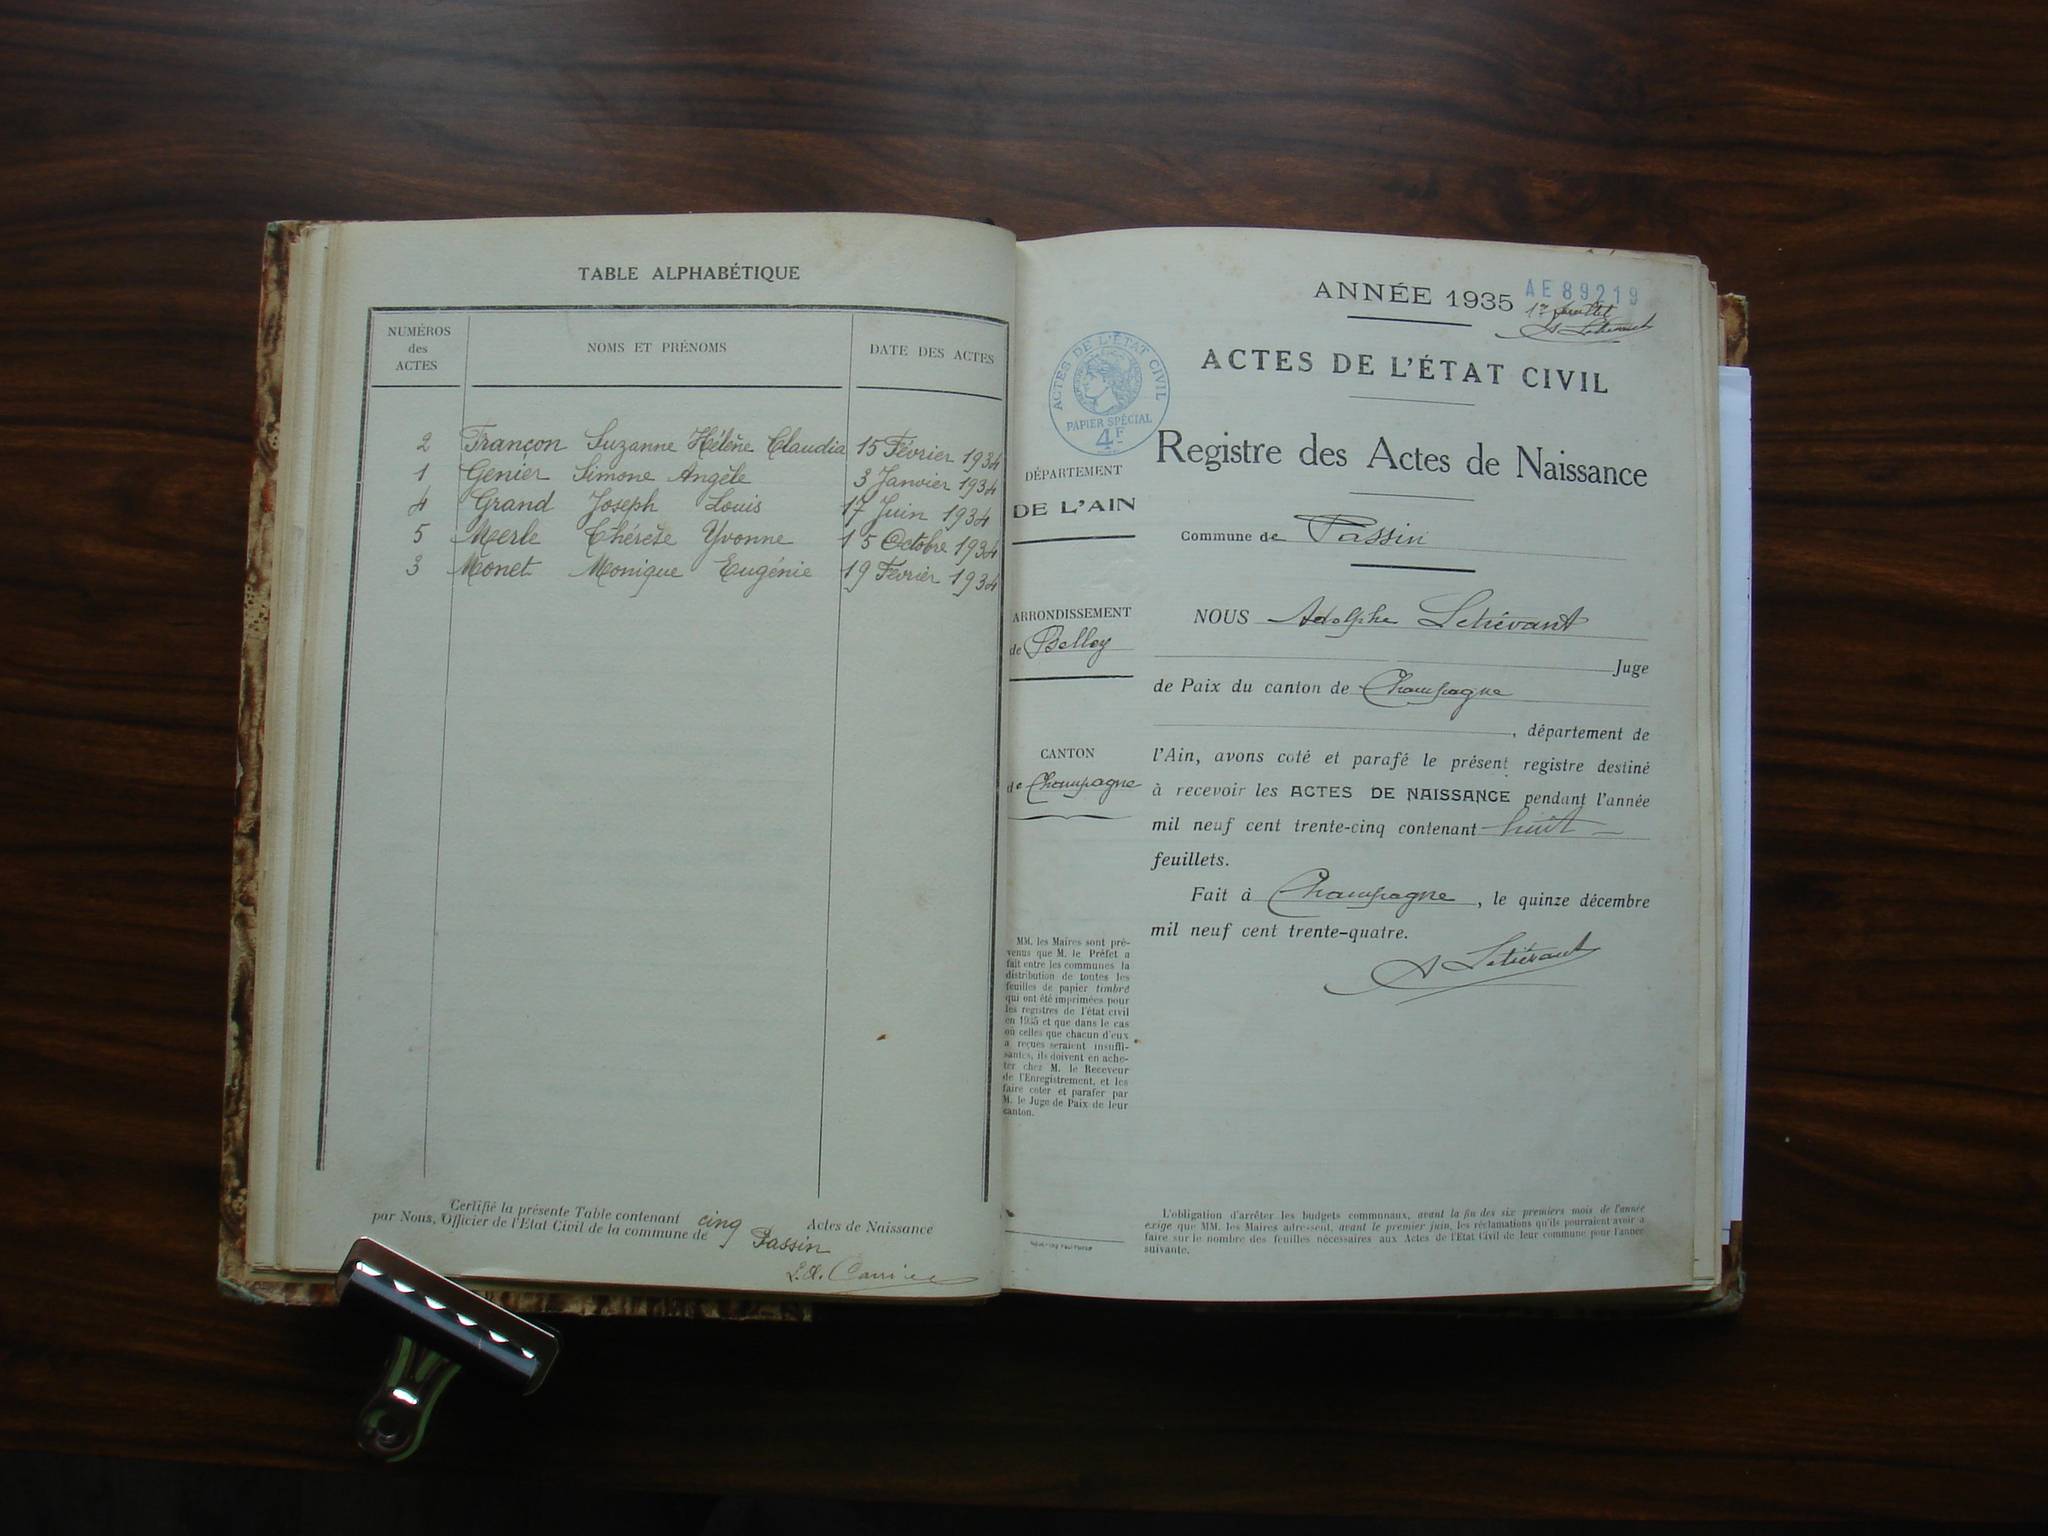 TABLE ALPHABÉTIQUE
NUMÉROS
des
ACTES
NOMS ET PRÉNOMS
DATE DES ACTES
2 Françon Suzanne Hélène Claudia 15 Février 1934
1 Genier Simone Angèle 3 Janvier 1934
4 Grand Joseph Louis 17 Juin 1934
5 Merle Thérèse Yvonne 15 Octobre 1934
3 Monet Monique Eugénie 19 Février 1934
Certifié la présente Table contenant cinq Actes de Naissance
par Nous, Officier de l'Etat Civil de la commune de Passin
ANNÉE 1935
AE 89219
1er feuillet
A Letiévant
ACTES DE L'ÉTAT CIVIL
PAPIER SPÉCIAL
4F
ACTES DE L'ÉTAT CIVIL
Registre des Actes de Naissance
DÉPARTEMENT
DE L'AIN
Commune de Passin
ARRONDISSEMENT
de Belley
CANTON
de Champagne
NOUS Adolphe Letiévant
Juge
de Paix du canton de Champagne
, département de
l'Ain, avons coté et parafé le présent registre destiné
à recevoir les ACTES DE NAISSANCE pendant l'année
mil neuf cent trente-cinq contenant huit
feuillets.
Fait à Champagne, le quinze décembre
mil neuf cent trente-quatre.
A Letiévant
MM. les Maires sont pré-
venus que M. le Préfet a
fait entre les communes la
distribution de toutes les
feuilles de papier timbré
qui ont été imprimées pour
les registres de l'état civil
en 1935 et que dans le cas
où celles que chacun d'eux
a reçues seraient insuffi-
santes, ils doivent en ache-
ter chez M. le Receveur
de l'Enregistrement, et les
faire coter et parafer par
M. le Juge de Paix de leur
canton.
L'obligation d'arrêter les budgets communaux, avant la fin des six premiers mois de l'année
exige que MM. les Maires adressent, avant le premier juin, les réclamations qu'ils pourraient avoir à
faire sur le nombre des feuilles nécessaires aux Actes de l'Etat Civil de leur commune pour l'année
suivante.